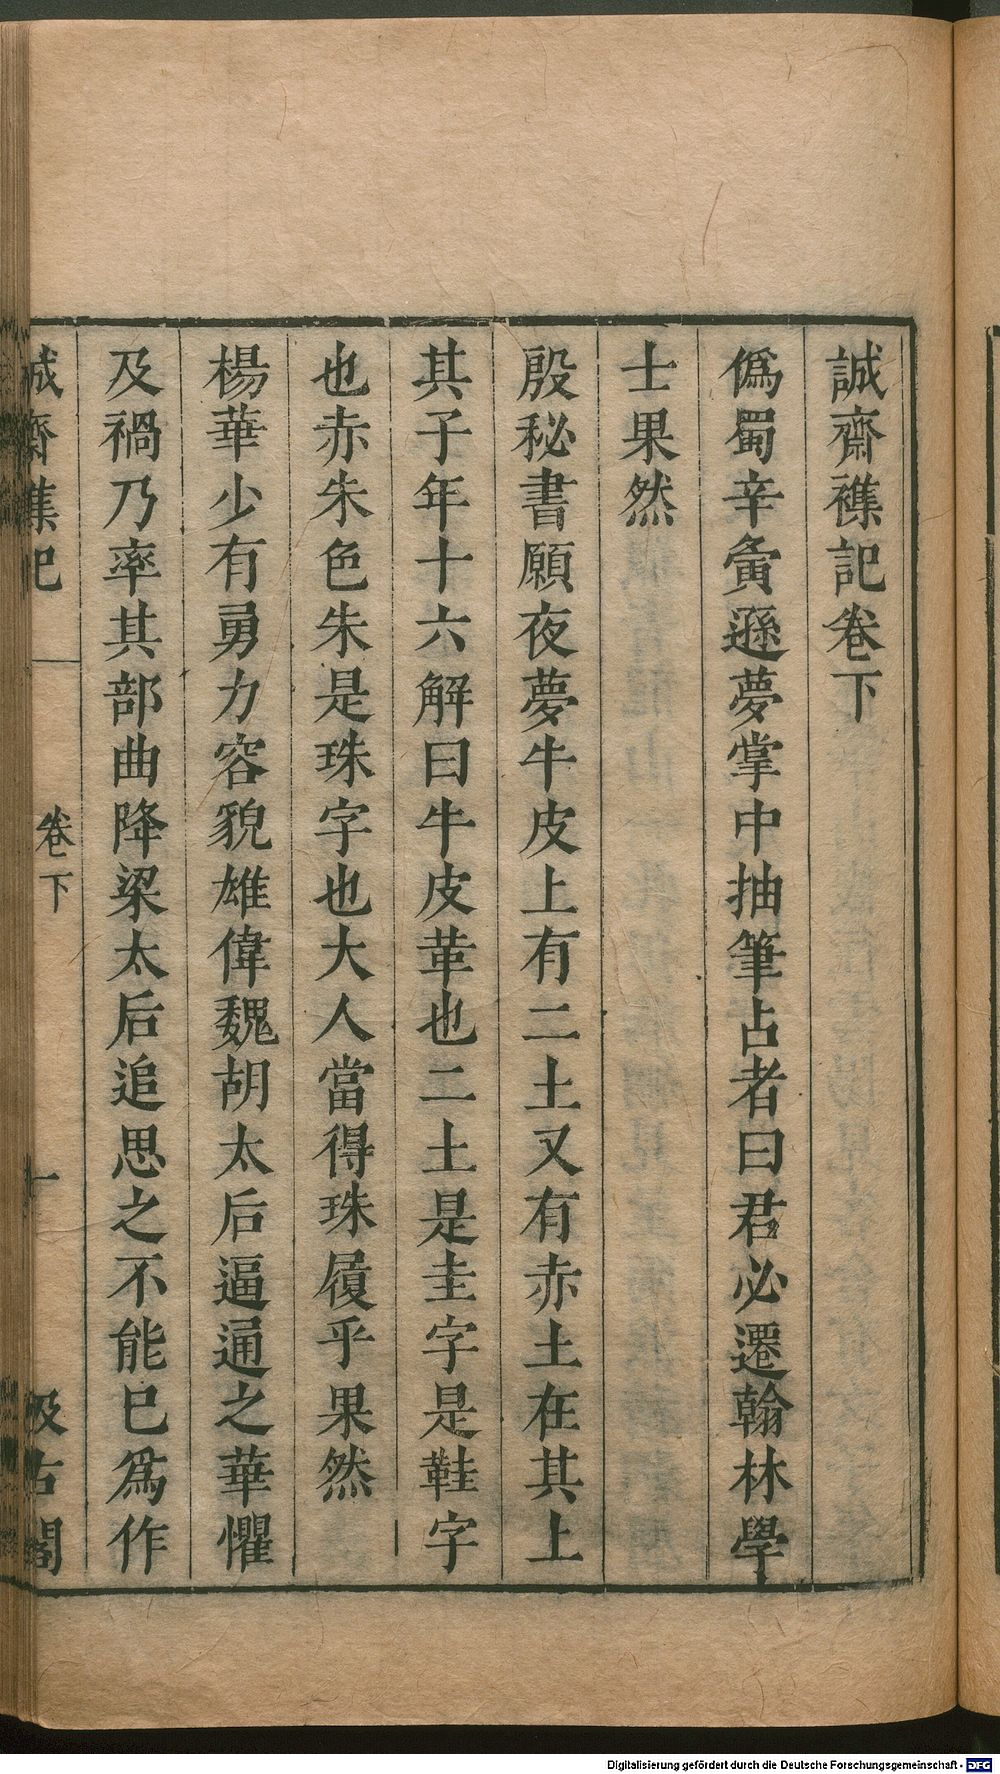 誠齋襍記卷下
僞蜀辛夤遜夢掌中抽筆占者曰君必遷翰林學
士果然
殷秘書願夜夢牛皮上有二土又有赤土在其上
其子年十六解曰牛皮革也二土是圭字是鞋字
也赤朱色朱是珠字也大人當得珠履乎果然
楊華少有勇力容貌雄偉魏胡太后逼通之華懼
及禍乃率其部曲降梁太后追思之不能已爲作
誠齋襍記
卷下
一
汲古閣
Digitalisierung gefördert durch die Deutsche Forschungsgemeinschaft - DFG